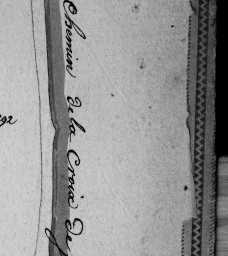 Chemin de la Croix de